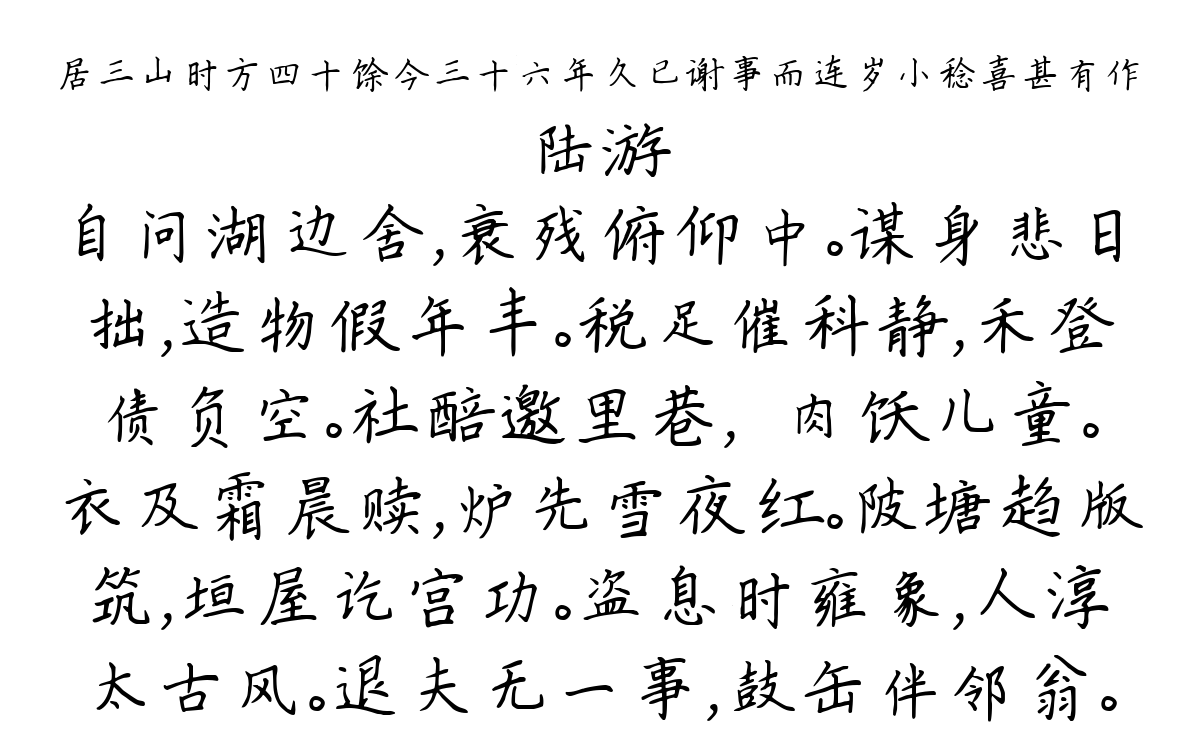 居三山时方四十馀今三十六年久已谢事而连岁小稔喜甚有作
陆游
自问湖边舍,衰残俯仰中。谋身悲日
拙,造物假年丰。税足催科静,禾登
债负空。社醅邀里巷,肉饫儿童。
衣及霜晨赎,炉先雪夜红。陂塘趋版
筑,垣屋讫宫功。盗息时雍象,人淳
太古风。退夫无一事,鼓缶伴邻翁。